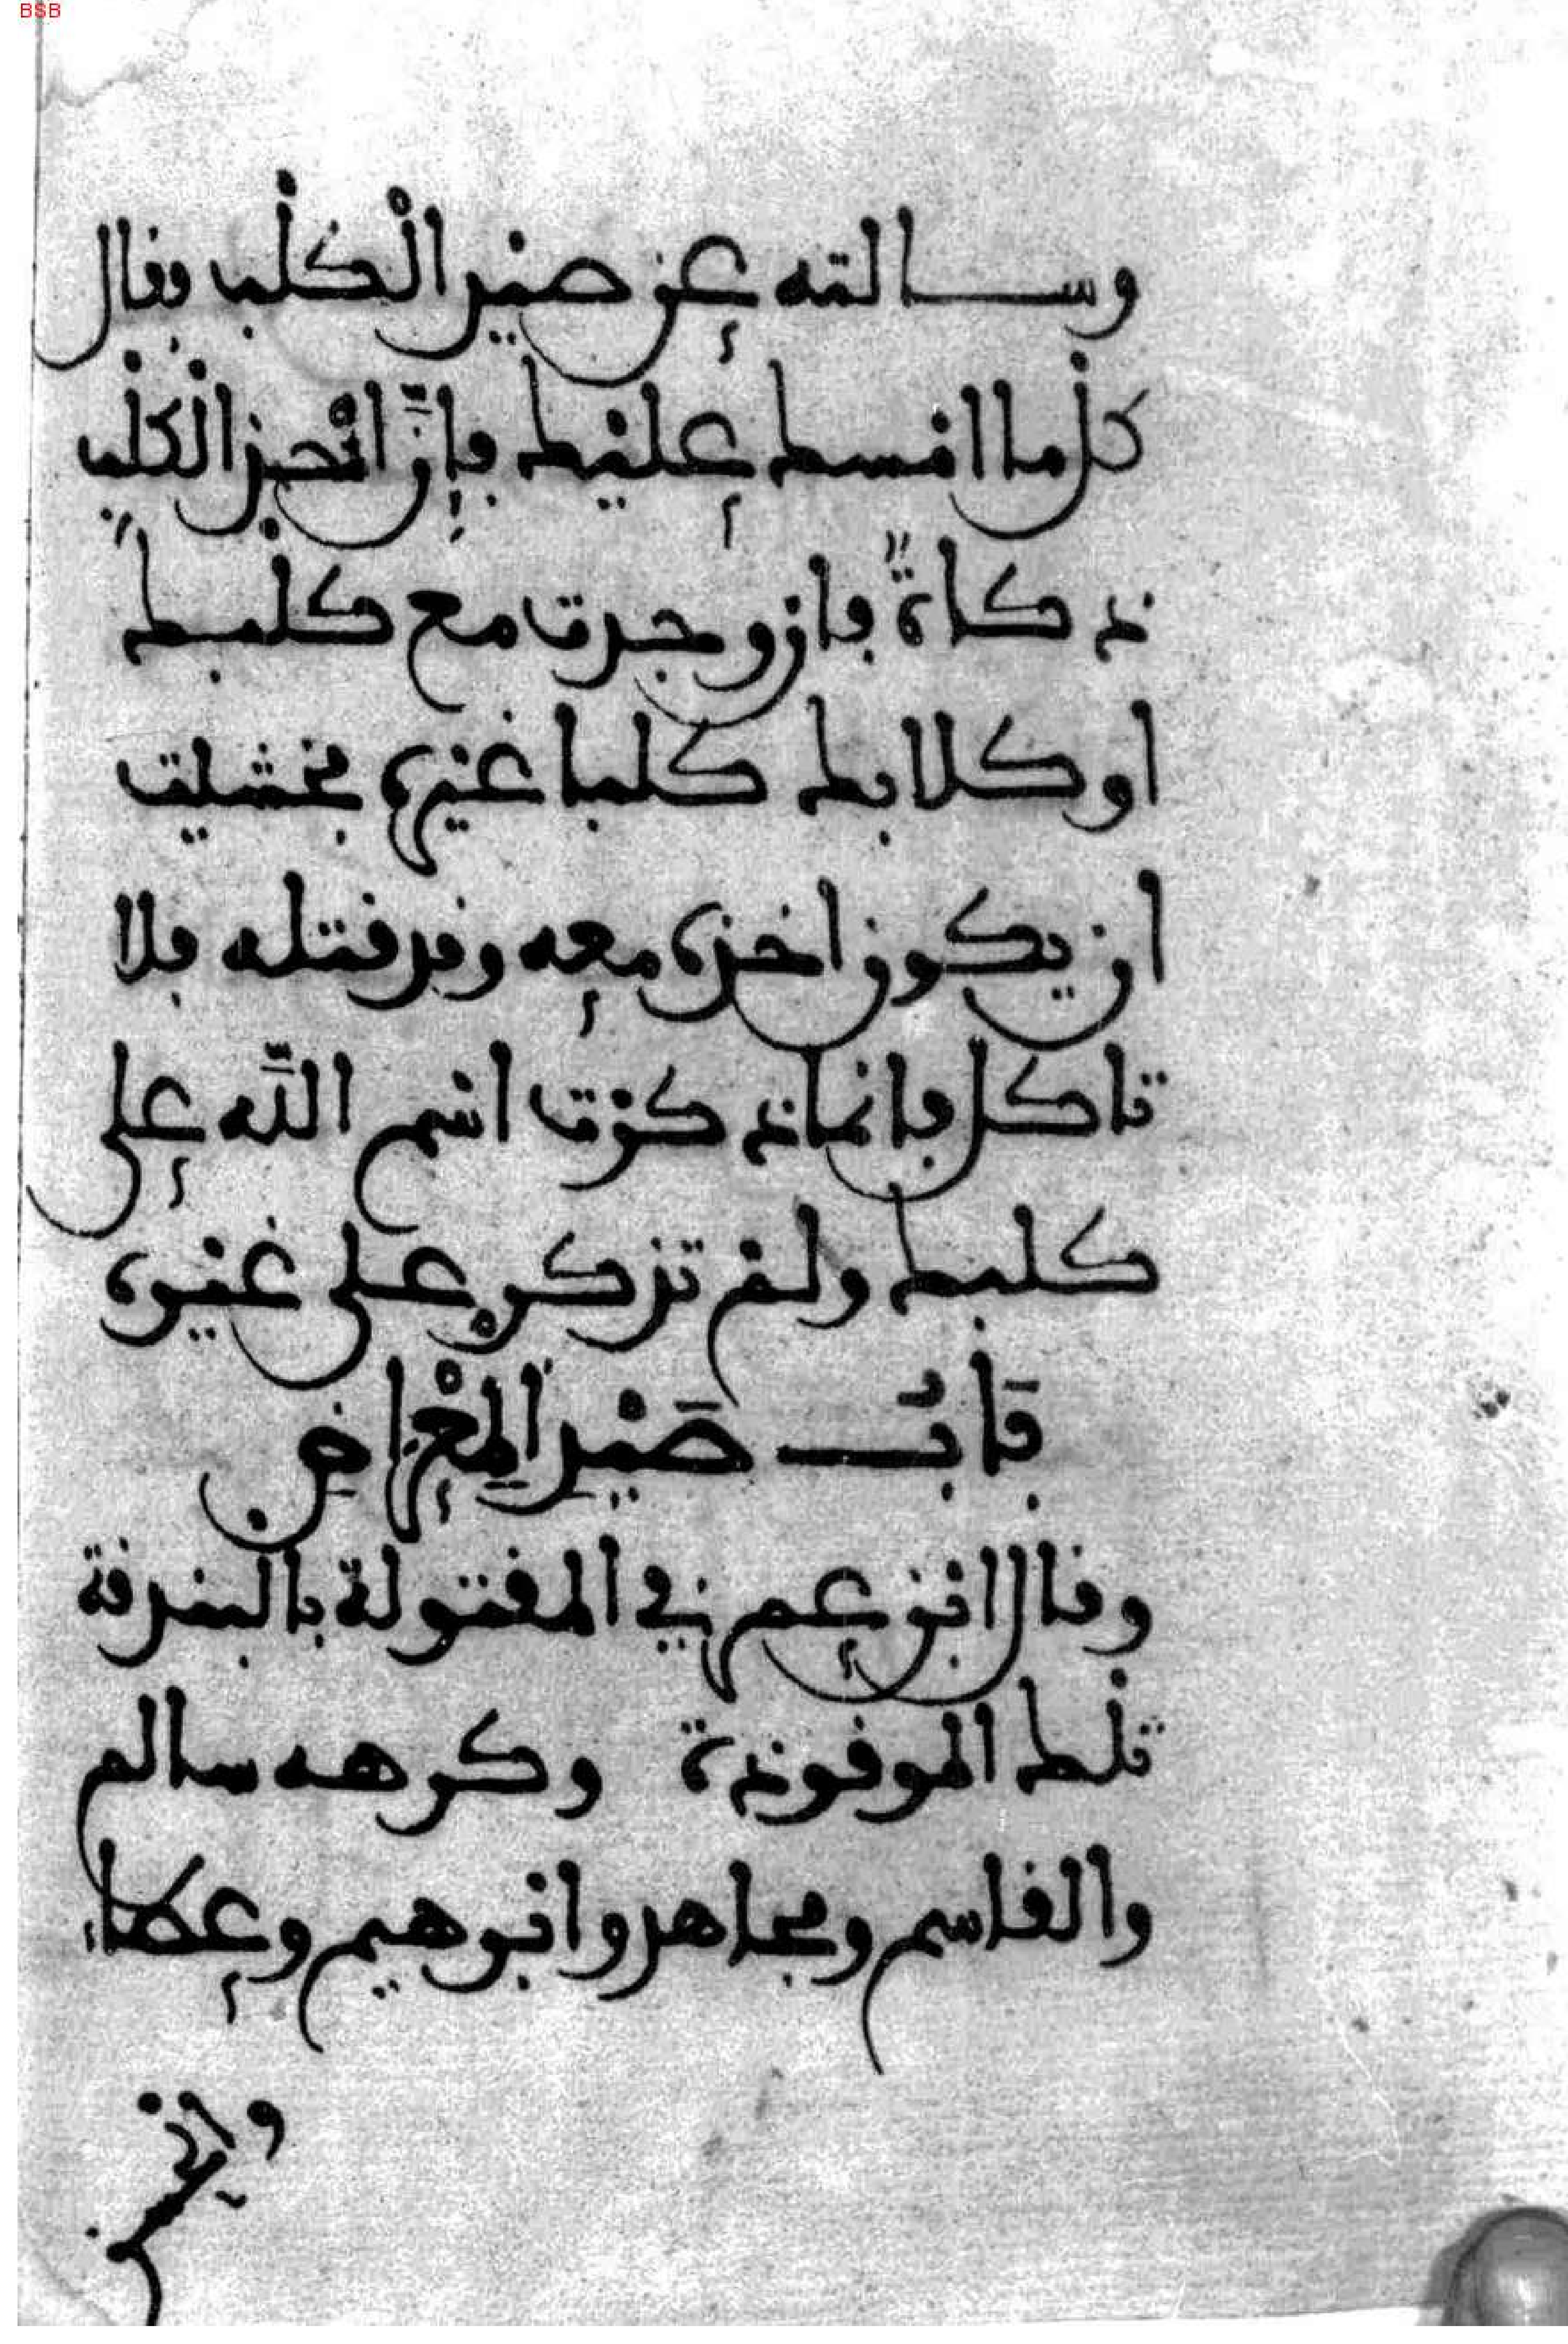 BSB
وسالته عن صيد الْكلْب فقال
كلْ ما امسك عليْك فإنَّ اخْذ الْكلْبِ
ذكاةً فان وجدت مع كلبك
او كلابك كلبا غيره فخشيت
ان يكون اخذه معه وقد قتله فلا
تاكل فانما ذكرْت اسْم اللَّه على
كلبك ولمْ تذكره على غيره
بَابُ صَيْدِ الْمِعْرَاضِ
وقال ابْن عمر في المقتولة بالبندقة
تلْك الموقوذة وكرهه سالم
والقاسم ومجاهد وابرهيم وعطاء